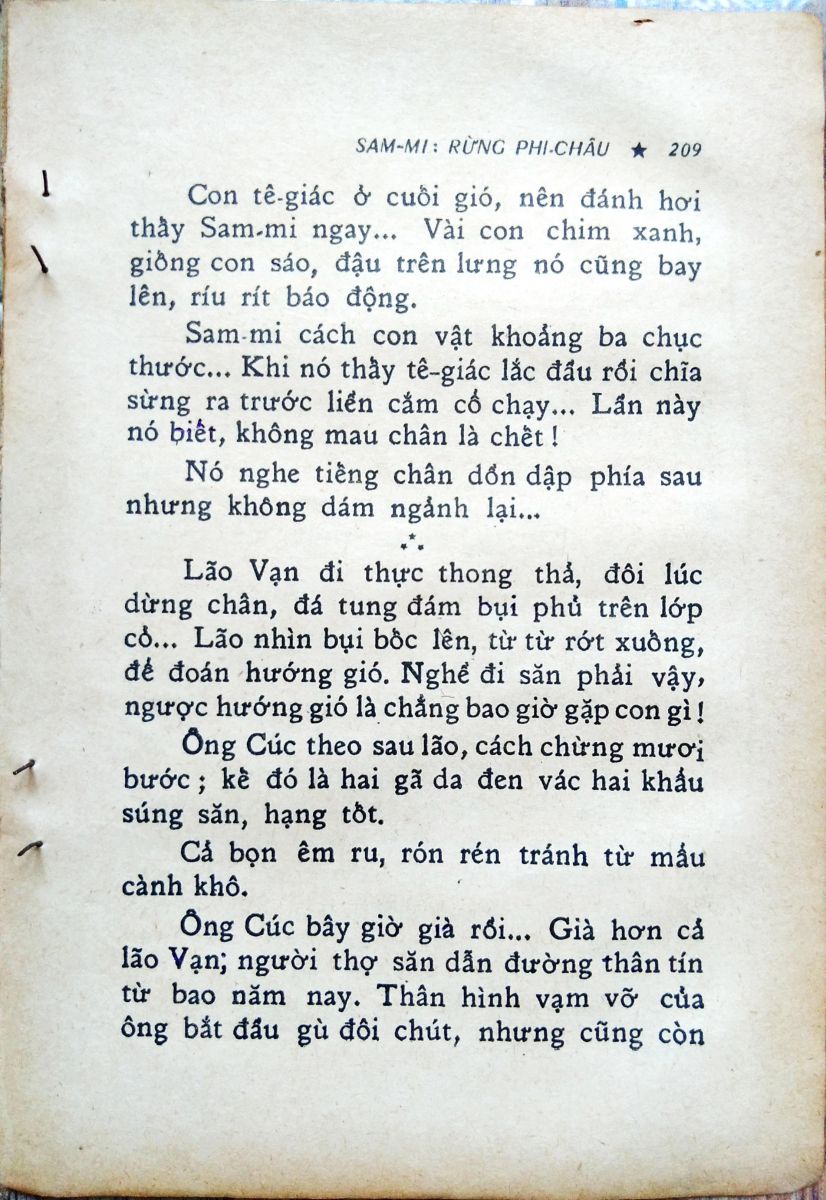 SAM-MI: RỪNG PHI-CHÂU ★ 209
Con tê-giác ở cuối gió, nên đánh hơi
thấy Sam-mi ngay... Vài con chim xanh,
giống con sáo, đậu trên lưng nó cũng bay
lên, ríu rít báo động.
Sam-mi cách con vật khoảng ba chục
thước... Khi nó thấy tê-giác lắc đầu rồi chĩa
sừng ra trước liền cắm cổ chạy... Lần này
nó biết, không mau chân là chết !
Nó nghe tiếng chân dồn dập phía sau
nhưng không dám ngảnh lại...
Lão Vạn đi thực thong thả, đôi lúc
dừng chân, đá tung đám bụi phủ trên lớp
cỏ... Lão nhìn bụi bốc lên, từ từ rớt xuống,
để đoán hướng gió. Nghề đi săn phải vậy,
ngược hướng gió là chẳng bao giờ gặp con gì !
Ông Cúc theo sau lão, cách chừng mươi
bước ; kề đó là hai gã da đen vác hai khẩu
súng săn, hạng tốt.
Cả bọn êm ru, rón rén tránh từ mẩu
cành khô.
Ông Cúc bây giờ già rồi... Già hơn cả
lão Vạn; người thợ săn dẫn đường thân tín
từ bao năm nay. Thân hình vạm vỡ của
ông bắt đầu gù đôi chút, nhưng cũng còn